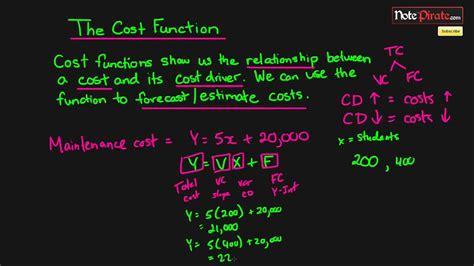 The Cost Function
NotePirate.com
Subscribe
Cost functions show us the relationship between
a cost and its cost driver. We can use the
function to forecast/estimate costs.
TC
VC FC
CD ↑ = costs ↑
CD ↓ = costs ↓
x = students
200, 400
Maintenance cost = Y = 5x + 20,000
Y = V X + F
Total cost
VC slope
var CD
FC Y-Int
Y = 5(200) + 20,000
= 21,000
Y = 5(400) + 20,000
= 22